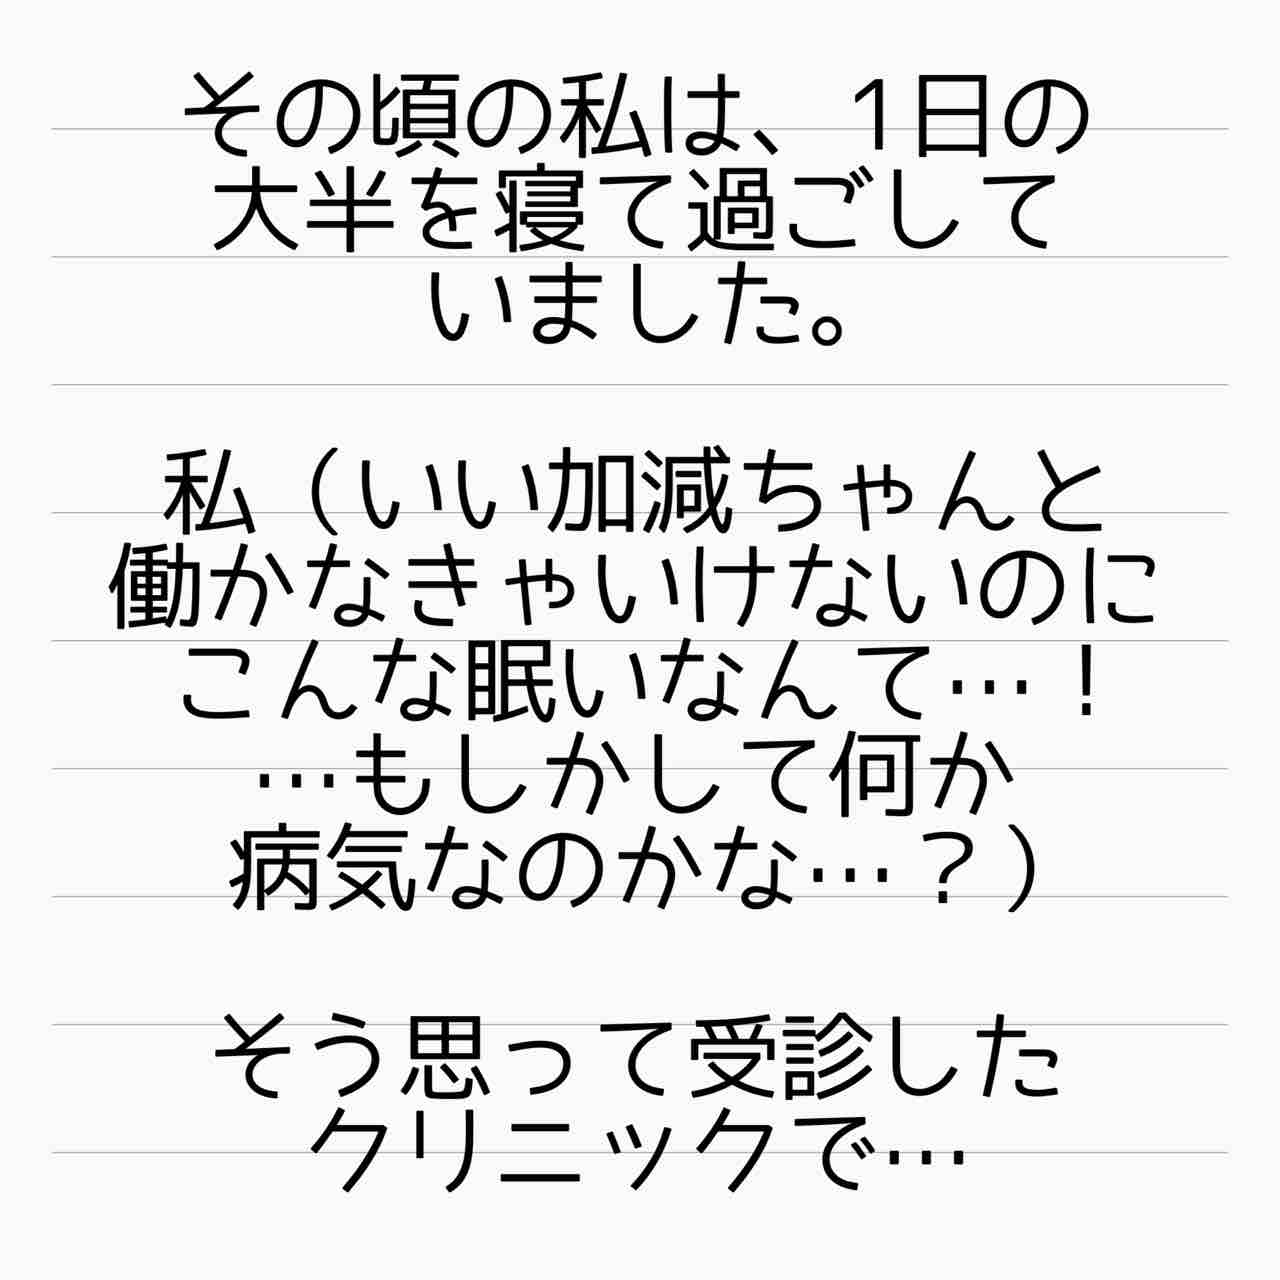 その頃の私は、1日の
大半を寝て過ごして
いました。
私（いい加減ちゃんと
働かなきゃいけないのに
こんな眠いなんて…！
…もしかして何か
病気なのかな…？）
そう思って受診した
クリニックで…